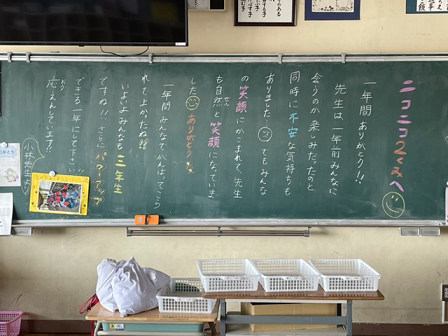 ニコニコ2くみへ
一年間ありがとう!!
先生は、一年前みんなに
会うのが楽しみだったのと
同時に不安な気持ちも
ありました でもみんな
の笑顔にかこまれて、先生
も自然と笑顔になっていま
した ありがとう
一年間みんなでがんばってこら
れてよかったね!!
いよいよみんなも三年生
ですね!!さらにパワーアップ
できる一年にして下さい
応えんしています!!
小林先生より